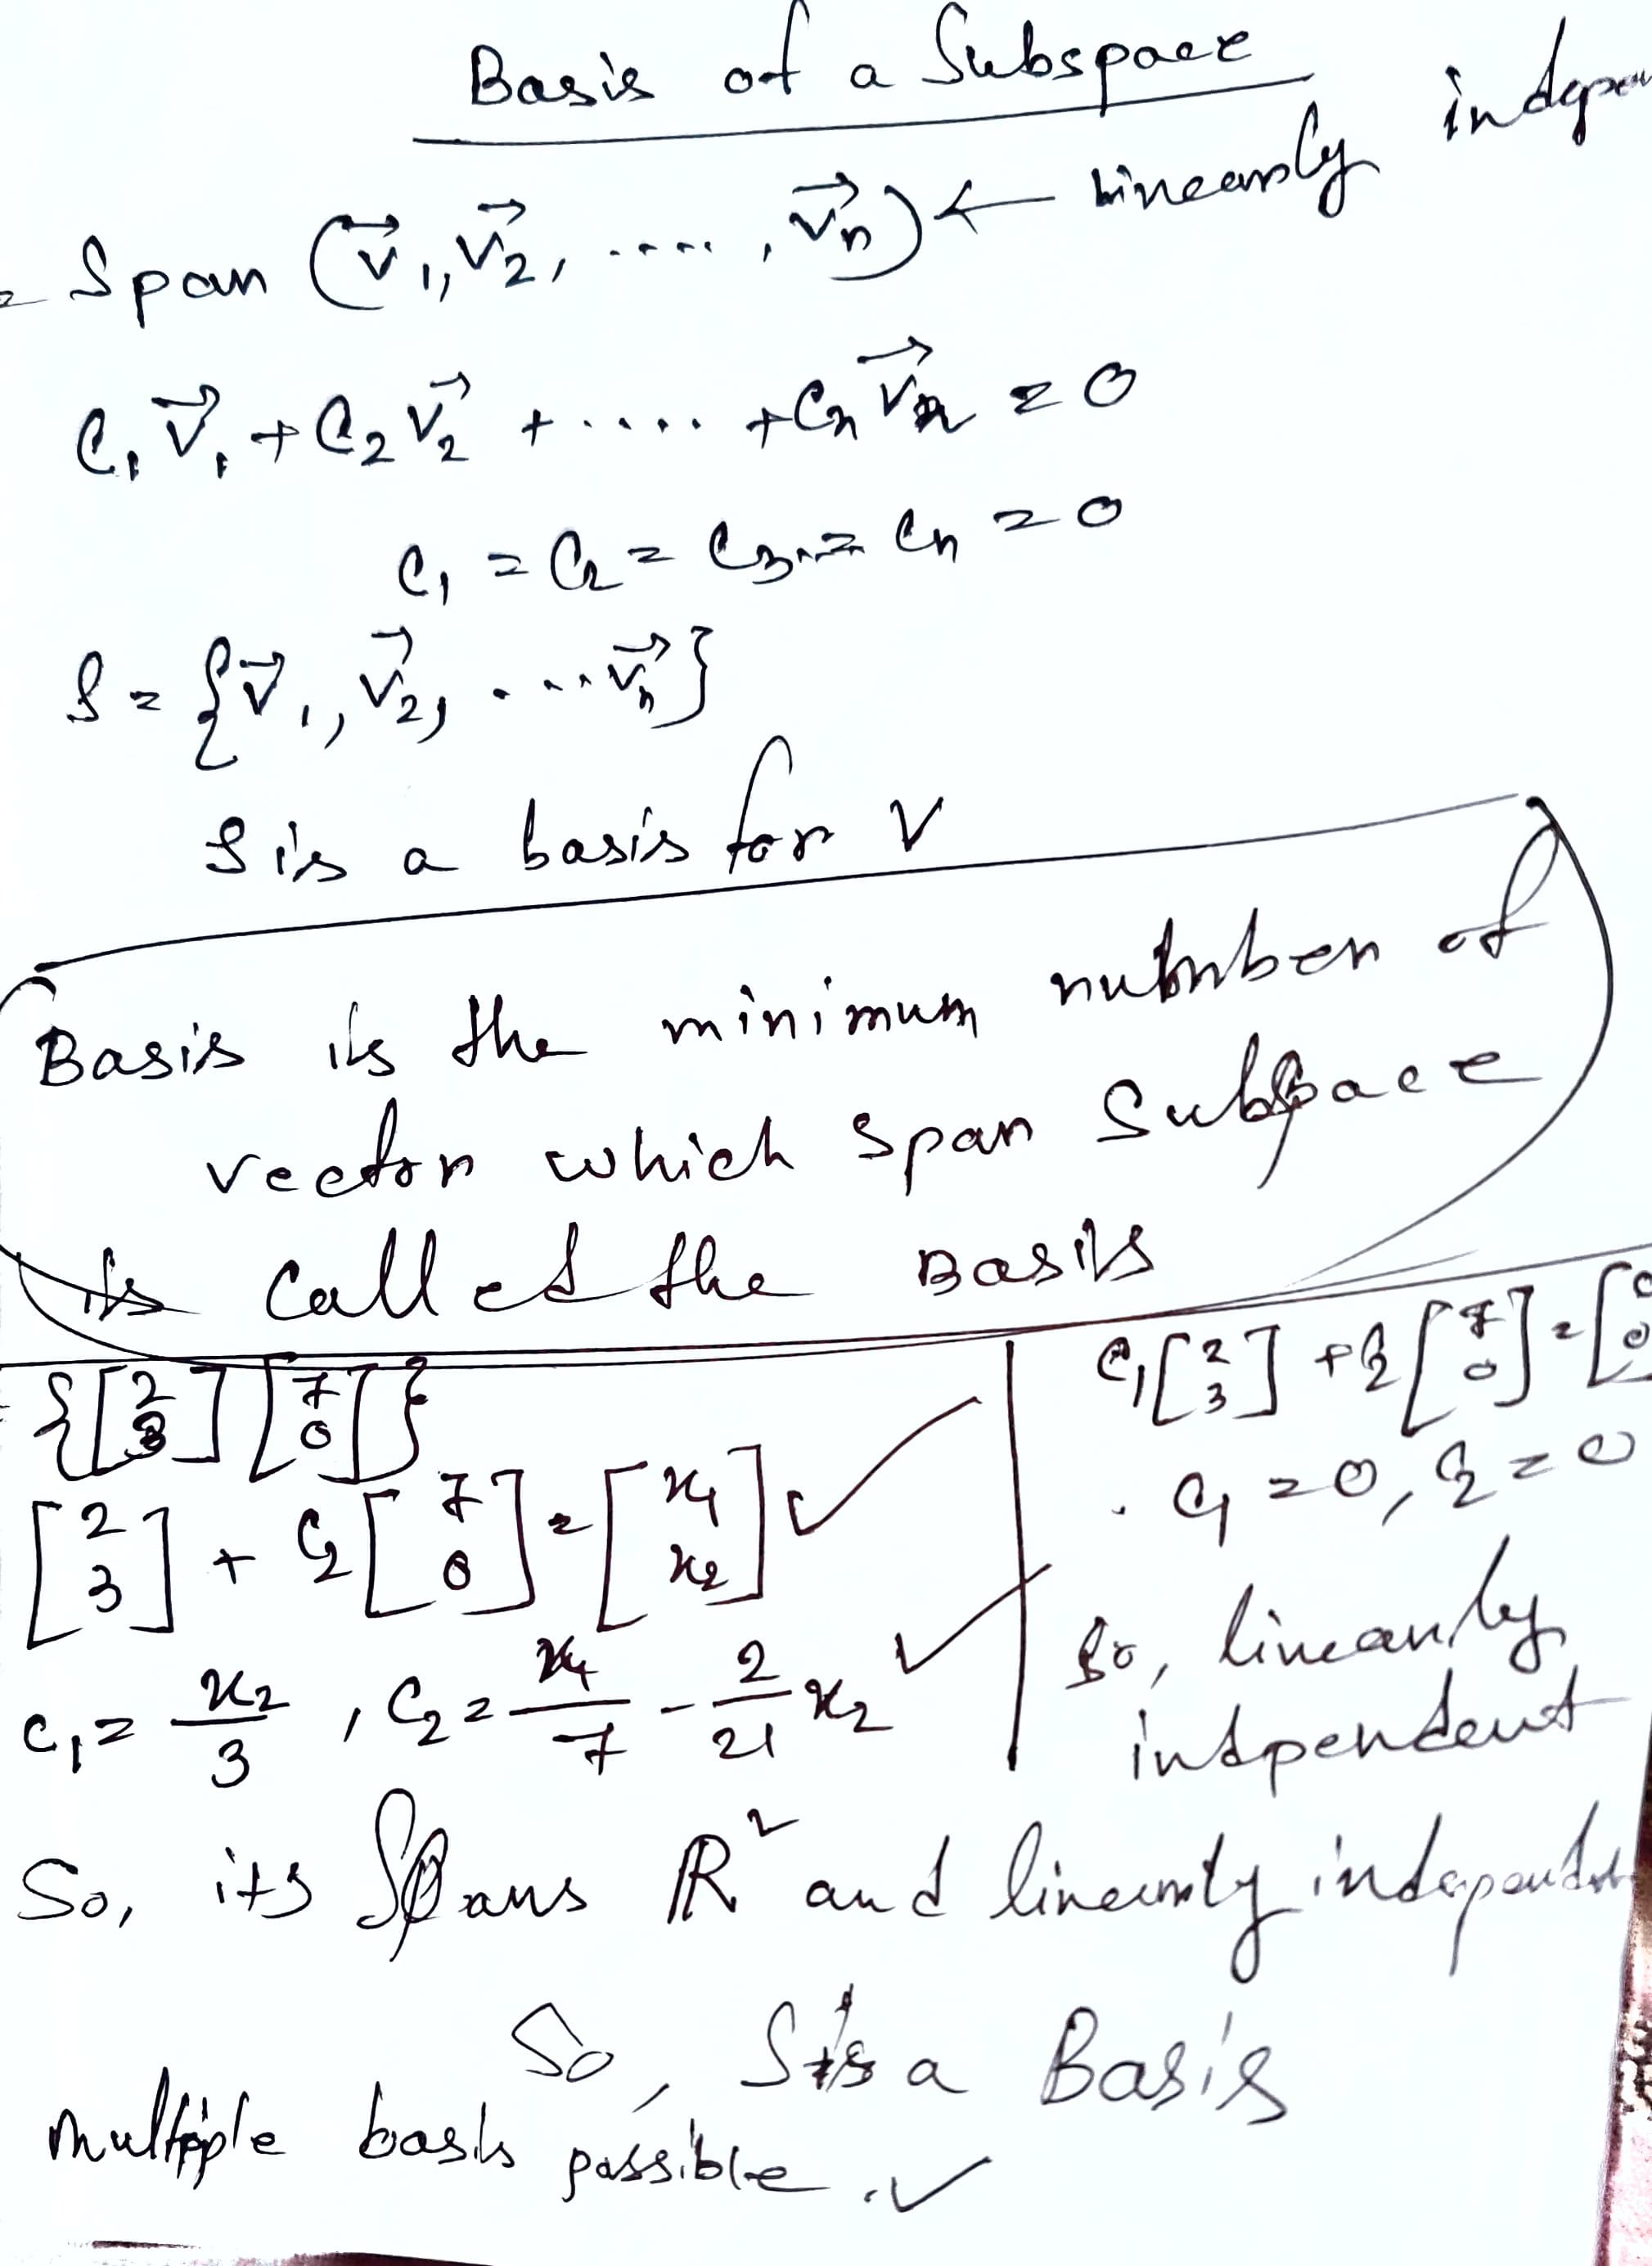 Basis of a Subspace
= Span (v⃗₁, v⃗₂, ....., v⃗ₙ) ← linearly
C₁v⃗₁ + C₂v⃗₂ + ..... + Cₙv⃗ₙ = 0
C₁ = C₂ = C₃ .. = Cₙ = 0
S = {v⃗₁, v⃗₂, ....v⃗ₙ}
S is a basis for V
Basis is the minimum number of
vector which span Subspace
is called the Basis
{[2 3] [7 0]}
[2 3] + C₂ [7 0] = [x₁ x₂] ✓
C₁ = x₂/3 , C₂ = x₁/7 - 2/21 x₂ ✓
C₁ [2 3] + C₂ [7 0] = [0 0
. C₁ = 0, C₂ = 0
So, linearly
indpendent
So, its Spans R² and linearly
So, S is a Basis
multiple basis possible. ✓